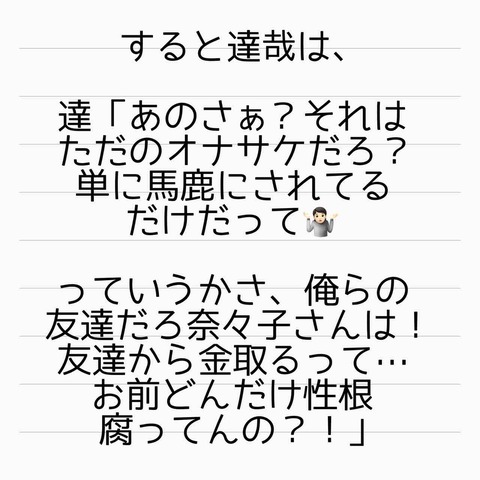 すると達哉は、
達「あのさぁ？それは
ただのオナサケだろ？
単に馬鹿にされてる
だけだって🤷🏻‍♂️
っていうかさ、俺らの
友達だろ奈々子さんは！
友達から金取るって…
お前どんだけ性根
腐ってんの？！」